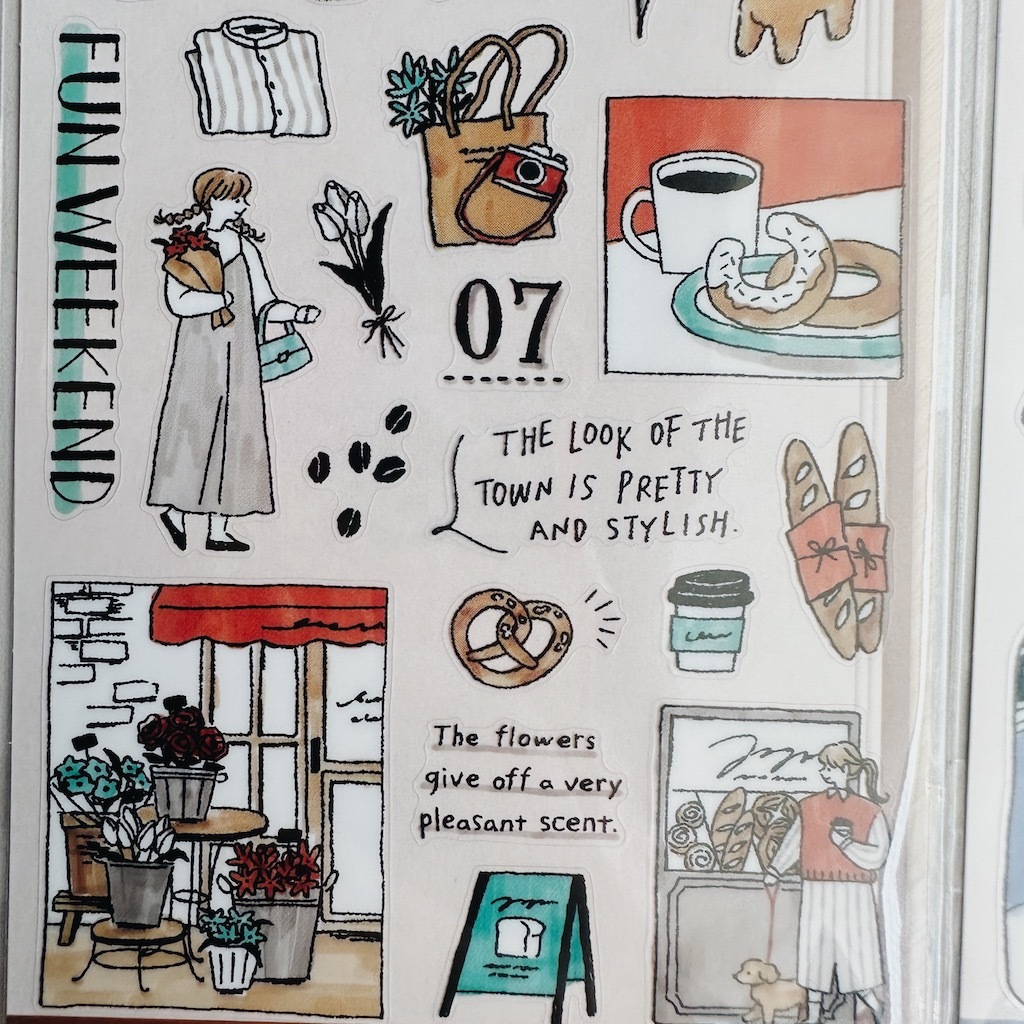 FUN WEEKEND
07
THE LOOK OF THE
TOWN IS PRETTY
AND STYLISH.
The flowers
give off a very
pleasant scent.